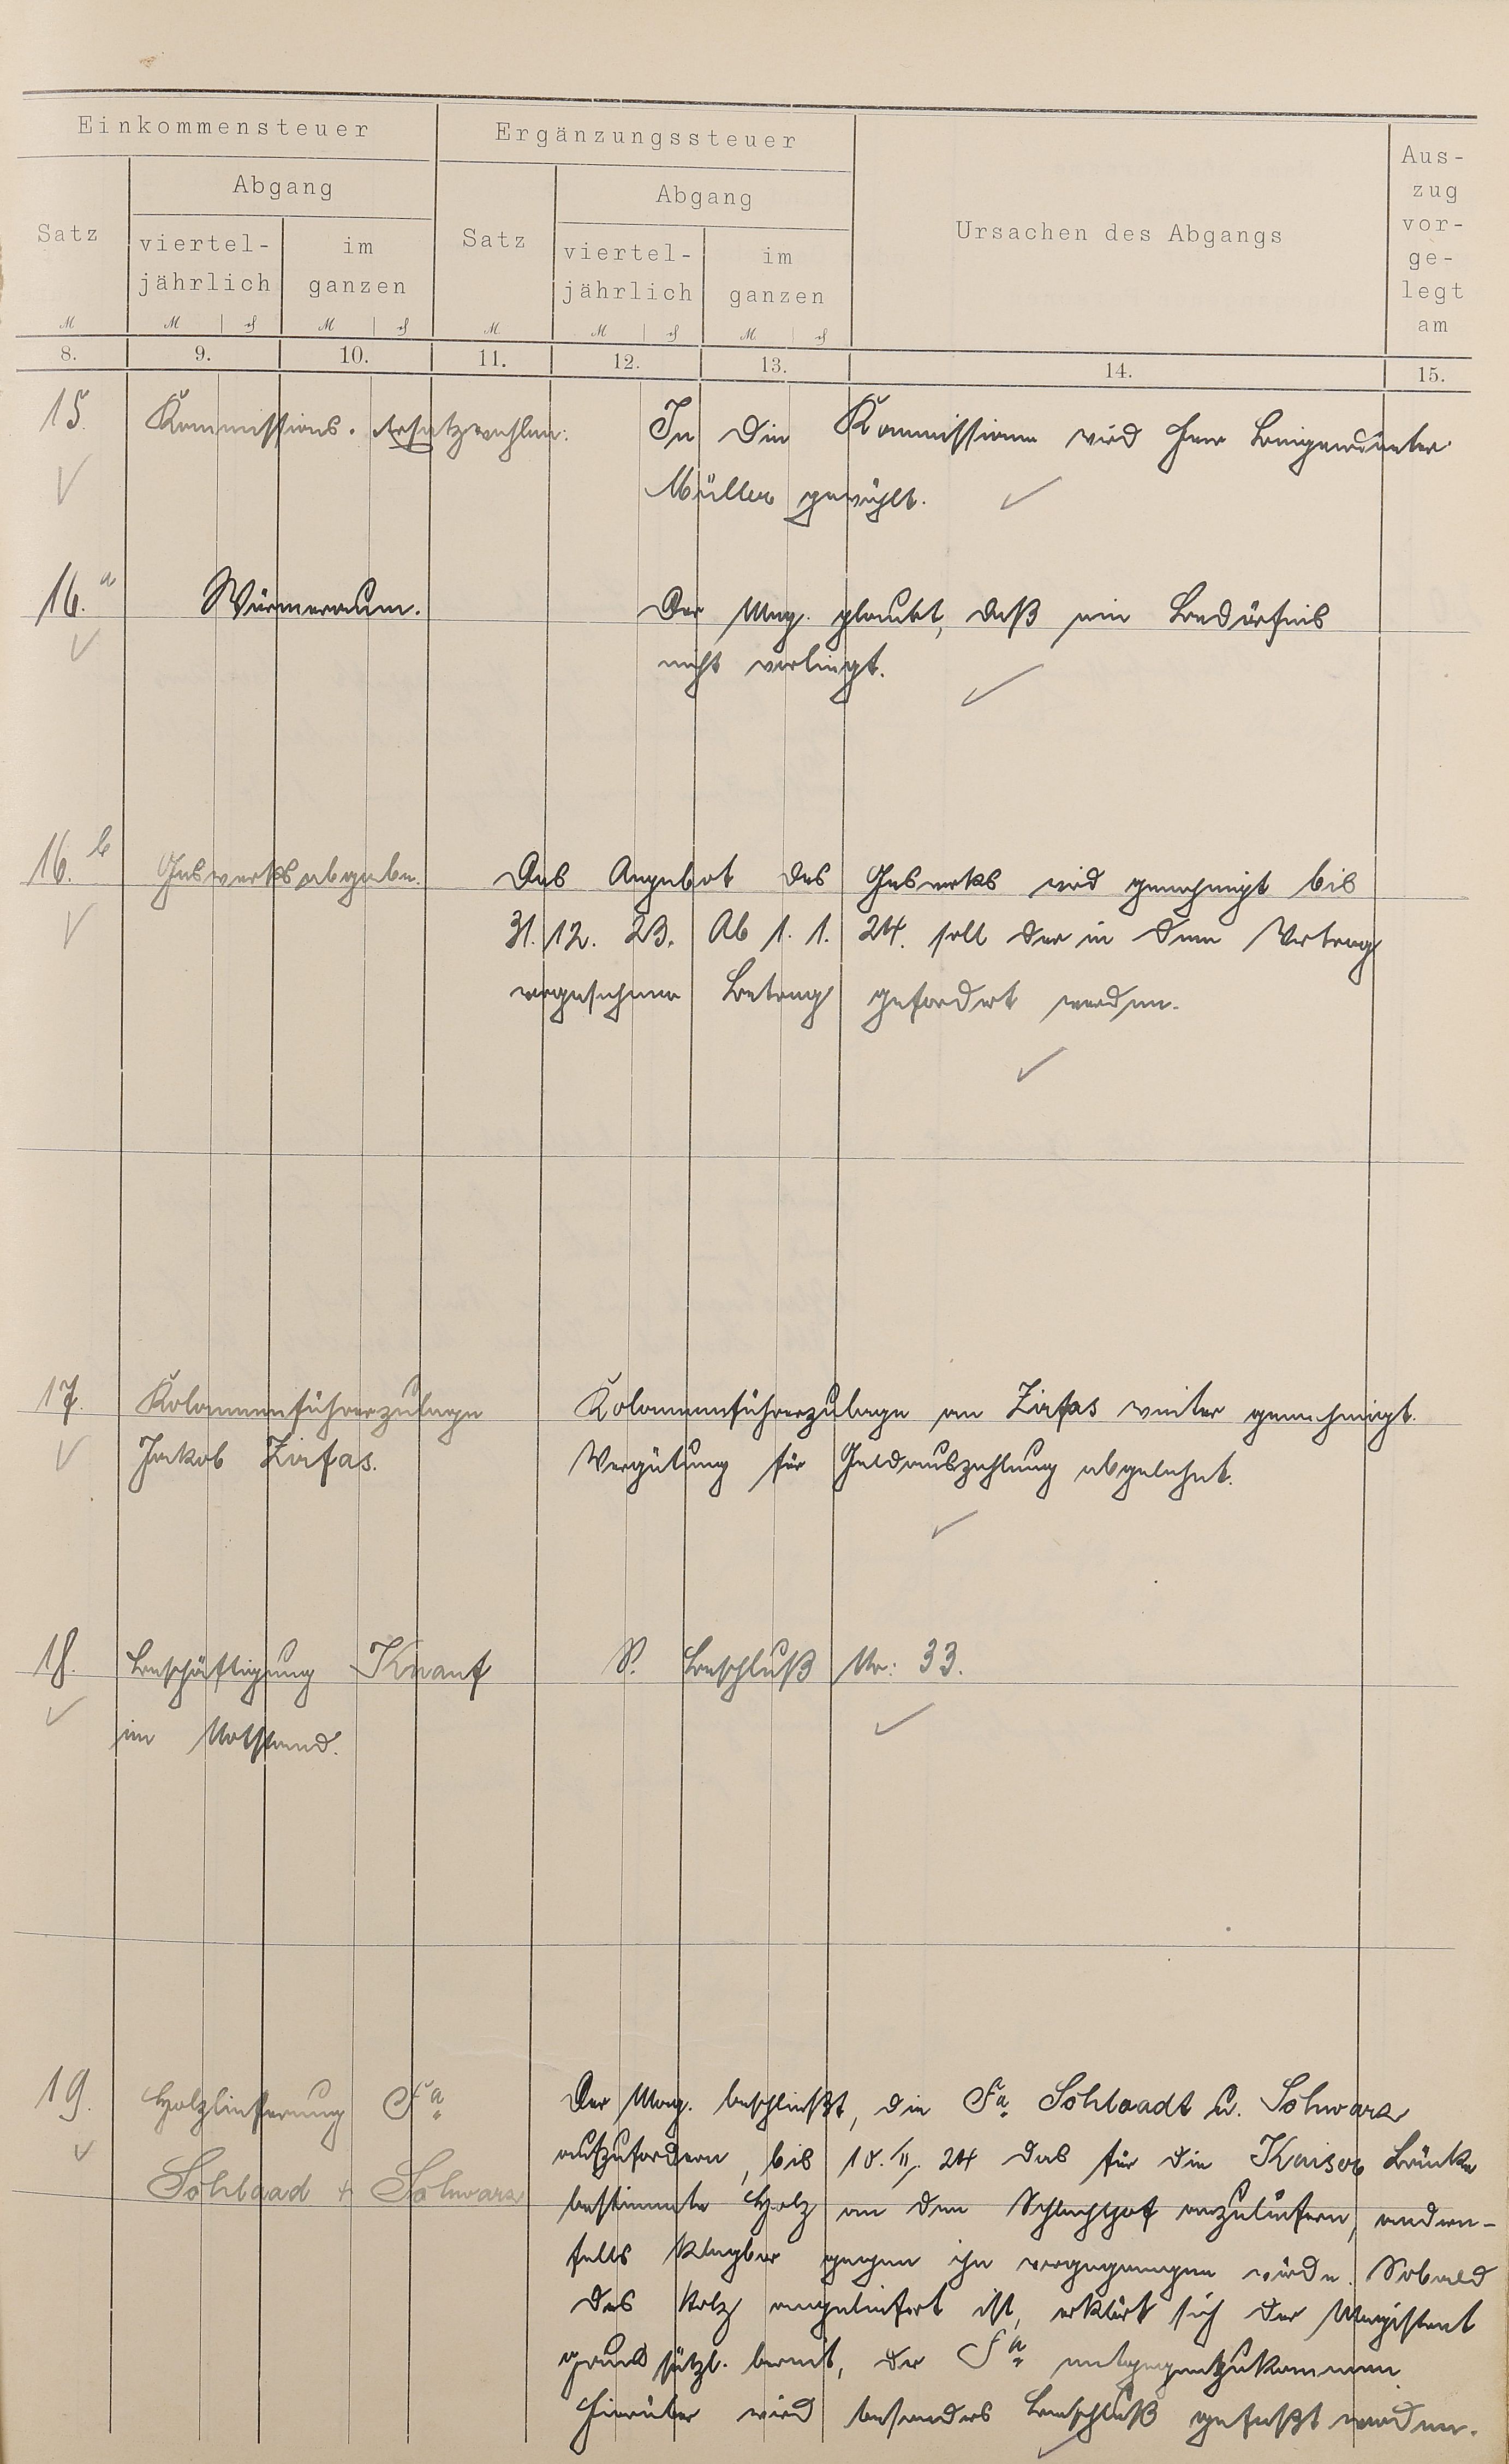 Einkommensteuer
Ergänzungssteuer
Ursachen des Abgangs
Aus-
zug
vor-
ge-
legt
am
Satz
Abgang
viertel-
jährlich
im
ganzen
Satz
Abgang
viertel-
jährlich
im
ganzen
M M ₰ M ₰ M M ₰ M ₰
8. 9. 10. 11. 12. 13. 14. 15.
15. Kommissions-Ersatzwahlen: In die Kommissionen wird Herr Beigeordneter
Müller gewählt.
16.a Wärmeraum. Der Mag. glaubt, daß ein Bedürfnis
nicht vorliegt.
16.b Gaswerksabgabe. Das Angebot des Gaswerks wird genehmigt bis
31.12.23. Ab 1.1.24. soll der in dem Vertrag
vorgesehene Betrag gefordert werden.
17. Kolonnenführerzulage Kolonnenführerzulage an Zirfas weiter genehmigt.
Jakob Zirfas. Vergütung für Geldauszahlung abgelehnt.
18. Beschäftigung Knauf S. Beschluß Nr: 33.
im Notstand.
19. Holzlieferung Fa. Der Mag. beschließt, die Fa. Schlaadt u. Schwarz
aufzufordern, bis 10.II.24 das für die Kaiser Brücke
Schlaad + Schwarz bestimmte Holz an den Schlachthof anzuliefern, andern-
falls klagbar gegen ihn vorgegangen würde. Sobald
das Holz angeliefert ist, erklärt sich der Magistrat
grundsätzl. bereit, der Fa. entgegenzukommen.
Hierüber wird besonders Beschluß gefaßt werden.